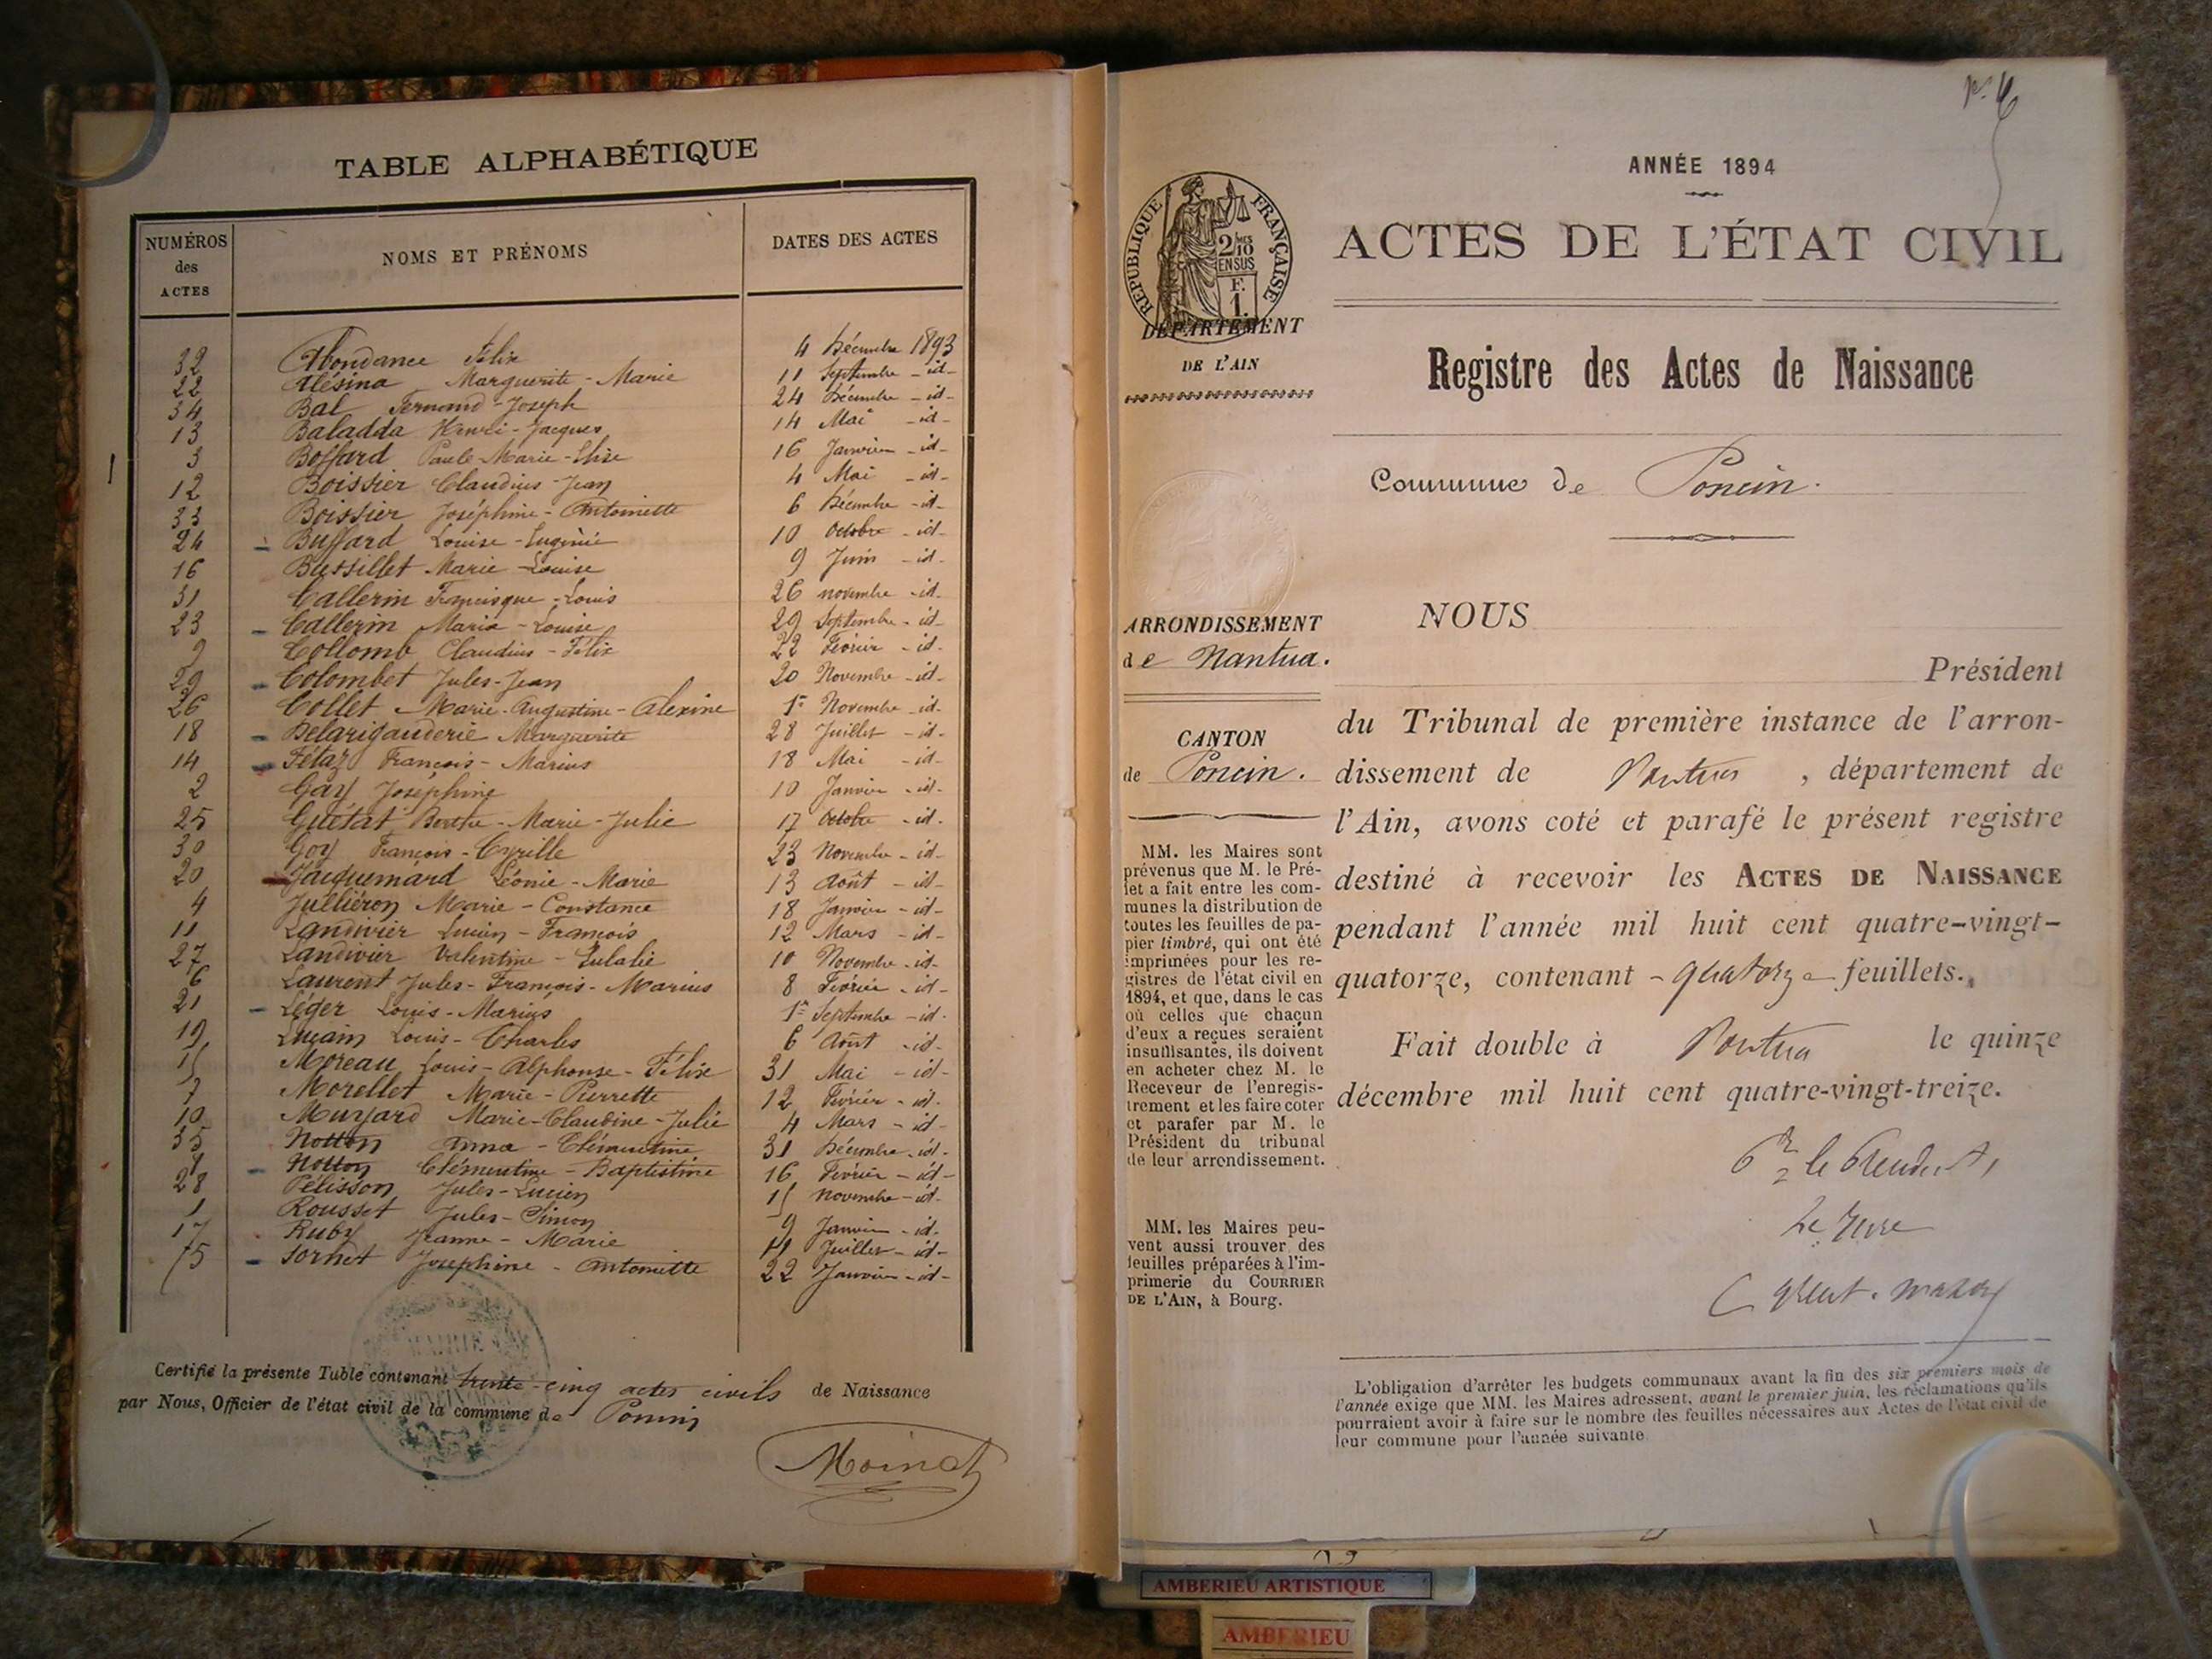 TABLE ALPHABÉTIQUE
NUMÉROS des ACTES
NOMS ET PRÉNOMS
DATES DES ACTES
32 Abondance Félix 4 Décembre 1893
22 Alésina Marguerite - Marie 11 Septembre - id -
34 Bal Fernand - Joseph 24 Décembre - id -
13 Baladda Henri - Jacques 14 Mai - id -
3 Boffard Paule - Marie - Elise 16 Janvier - id -
12 Boissier Claudius - Jean 4 Mai - id -
33 Boissier Joséphine - Antoinette 6 Décembre - id -
24 Buffard Louise - Eugénie 10 Octobre - id -
16 Bussillet Marie - Louise 9 Juin - id -
31 Callerin Francisque - Louis 26 novembre - id -
23 Callerin Maria - Louise 29 Septembre - id -
9 Collomb Claudius - Félix 22 Février - id -
29 Colombet Jules - Jean 20 Novembre - id -
26 Collet Marie - Augustine - Alexine 1er Novembre - id -
18 Delarigauderie Marguerite 28 Juillet - id -
14 Fétaz François - Marius 18 Mai - id -
2 Gay Joséphine 10 Janvier - id -
25 Guétat Berthe - Marie - Julie 17 Octobre - id -
30 Goy François - Cyrille 23 Novembre - id -
20 Jacquemard Léonie - Marie 13 Août - id -
4 Julliéron Marie - Constance 18 Janvier - id -
11 Landivier Lucien - François 12 Mars - id -
27 Landivier Valentine - Eulalie 10 Novembre - id -
6 Laurent Jules - François - Marius 8 Février - id -
21 Léger Louis - Marius 1er Septembre - id -
19 Luçain Louis - Charles 6 Août - id -
15 Moreau Louis - Alphonse - Félix 31 Mai - id -
7 Morellet Marie - Pierrette 12 Février - id -
10 Murjard Marie - Claudine - Julie 4 Mars - id -
35 Notton Anna - Clémentine 31 Décembre - id -
Notton Clémentine - Baptistine 16 Février - id -
28 Pélisson Jules - Lucien 15 novembre - id -
1 Rousset Jules - Simon 9 Janvier - id -
17 Ruby Jeanne - Marie Juillet - id -
5 Sornet Joséphine - Antoinette 22 Janvier - id -
Certifié la présente Table contenant trente-cinq actes civils de Naissance
par Nous, Officier de l'état civil de la commune de Poncin
Moinat
ANNÉE 1894
ACTES DE L'ÉTAT CIVIL
RÉPUBLIQUE FRANÇAISE
2/10mes
EN SUS
F.
1.
DÉPARTEMENT
DE L'AIN
Registre des Actes de Naissance
Commune de Poncin.
ARRONDISSEMENT
de Nantua.
CANTON
de Poncin.
MM. les Maires sont
prévenus que M. le Pré-
fet a fait entre les com-
munes la distribution de
toutes les feuilles de pa-
pier timbré, qui ont été
imprimées pour les re-
gistres de l'état civil en
1894, et que, dans le cas
où celles que chacun
d'eux a reçues seraient
insuffisantes, ils doivent
en acheter chez M. le
Receveur de l'enregis-
trement et les faire coter
et parafer par M. le
Président du tribunal
de leur arrondissement.
MM. les Maires peu-
vent aussi trouver des
feuilles préparées à l'im-
primerie du COURRIER
DE L'AIN, à Bourg.
NOUS
Président
du Tribunal de première instance de l'arron-
dissement de Nantua, département de
l'Ain, avons coté et parafé le présent registre
destiné à recevoir les ACTES DE NAISSANCE
pendant l'année mil huit cent quatre-vingt-
quatorze, contenant - quatorze - feuillets.
Fait double à Nantua le quinze
décembre mil huit cent quatre-vingt-treize.
Pr le Président,
Le Juge
L'obligation d'arrêter les budgets communaux avant la fin des six premiers mois de
l'année exige que MM. les Maires adressent, avant le premier juin, les réclamations qu'ils
pourraient avoir à faire sur le nombre des feuilles nécessaires aux Actes de l'état civil de
leur commune pour l'année suivante
AMBERIEU ARTISTIQUE
AMBERIEU